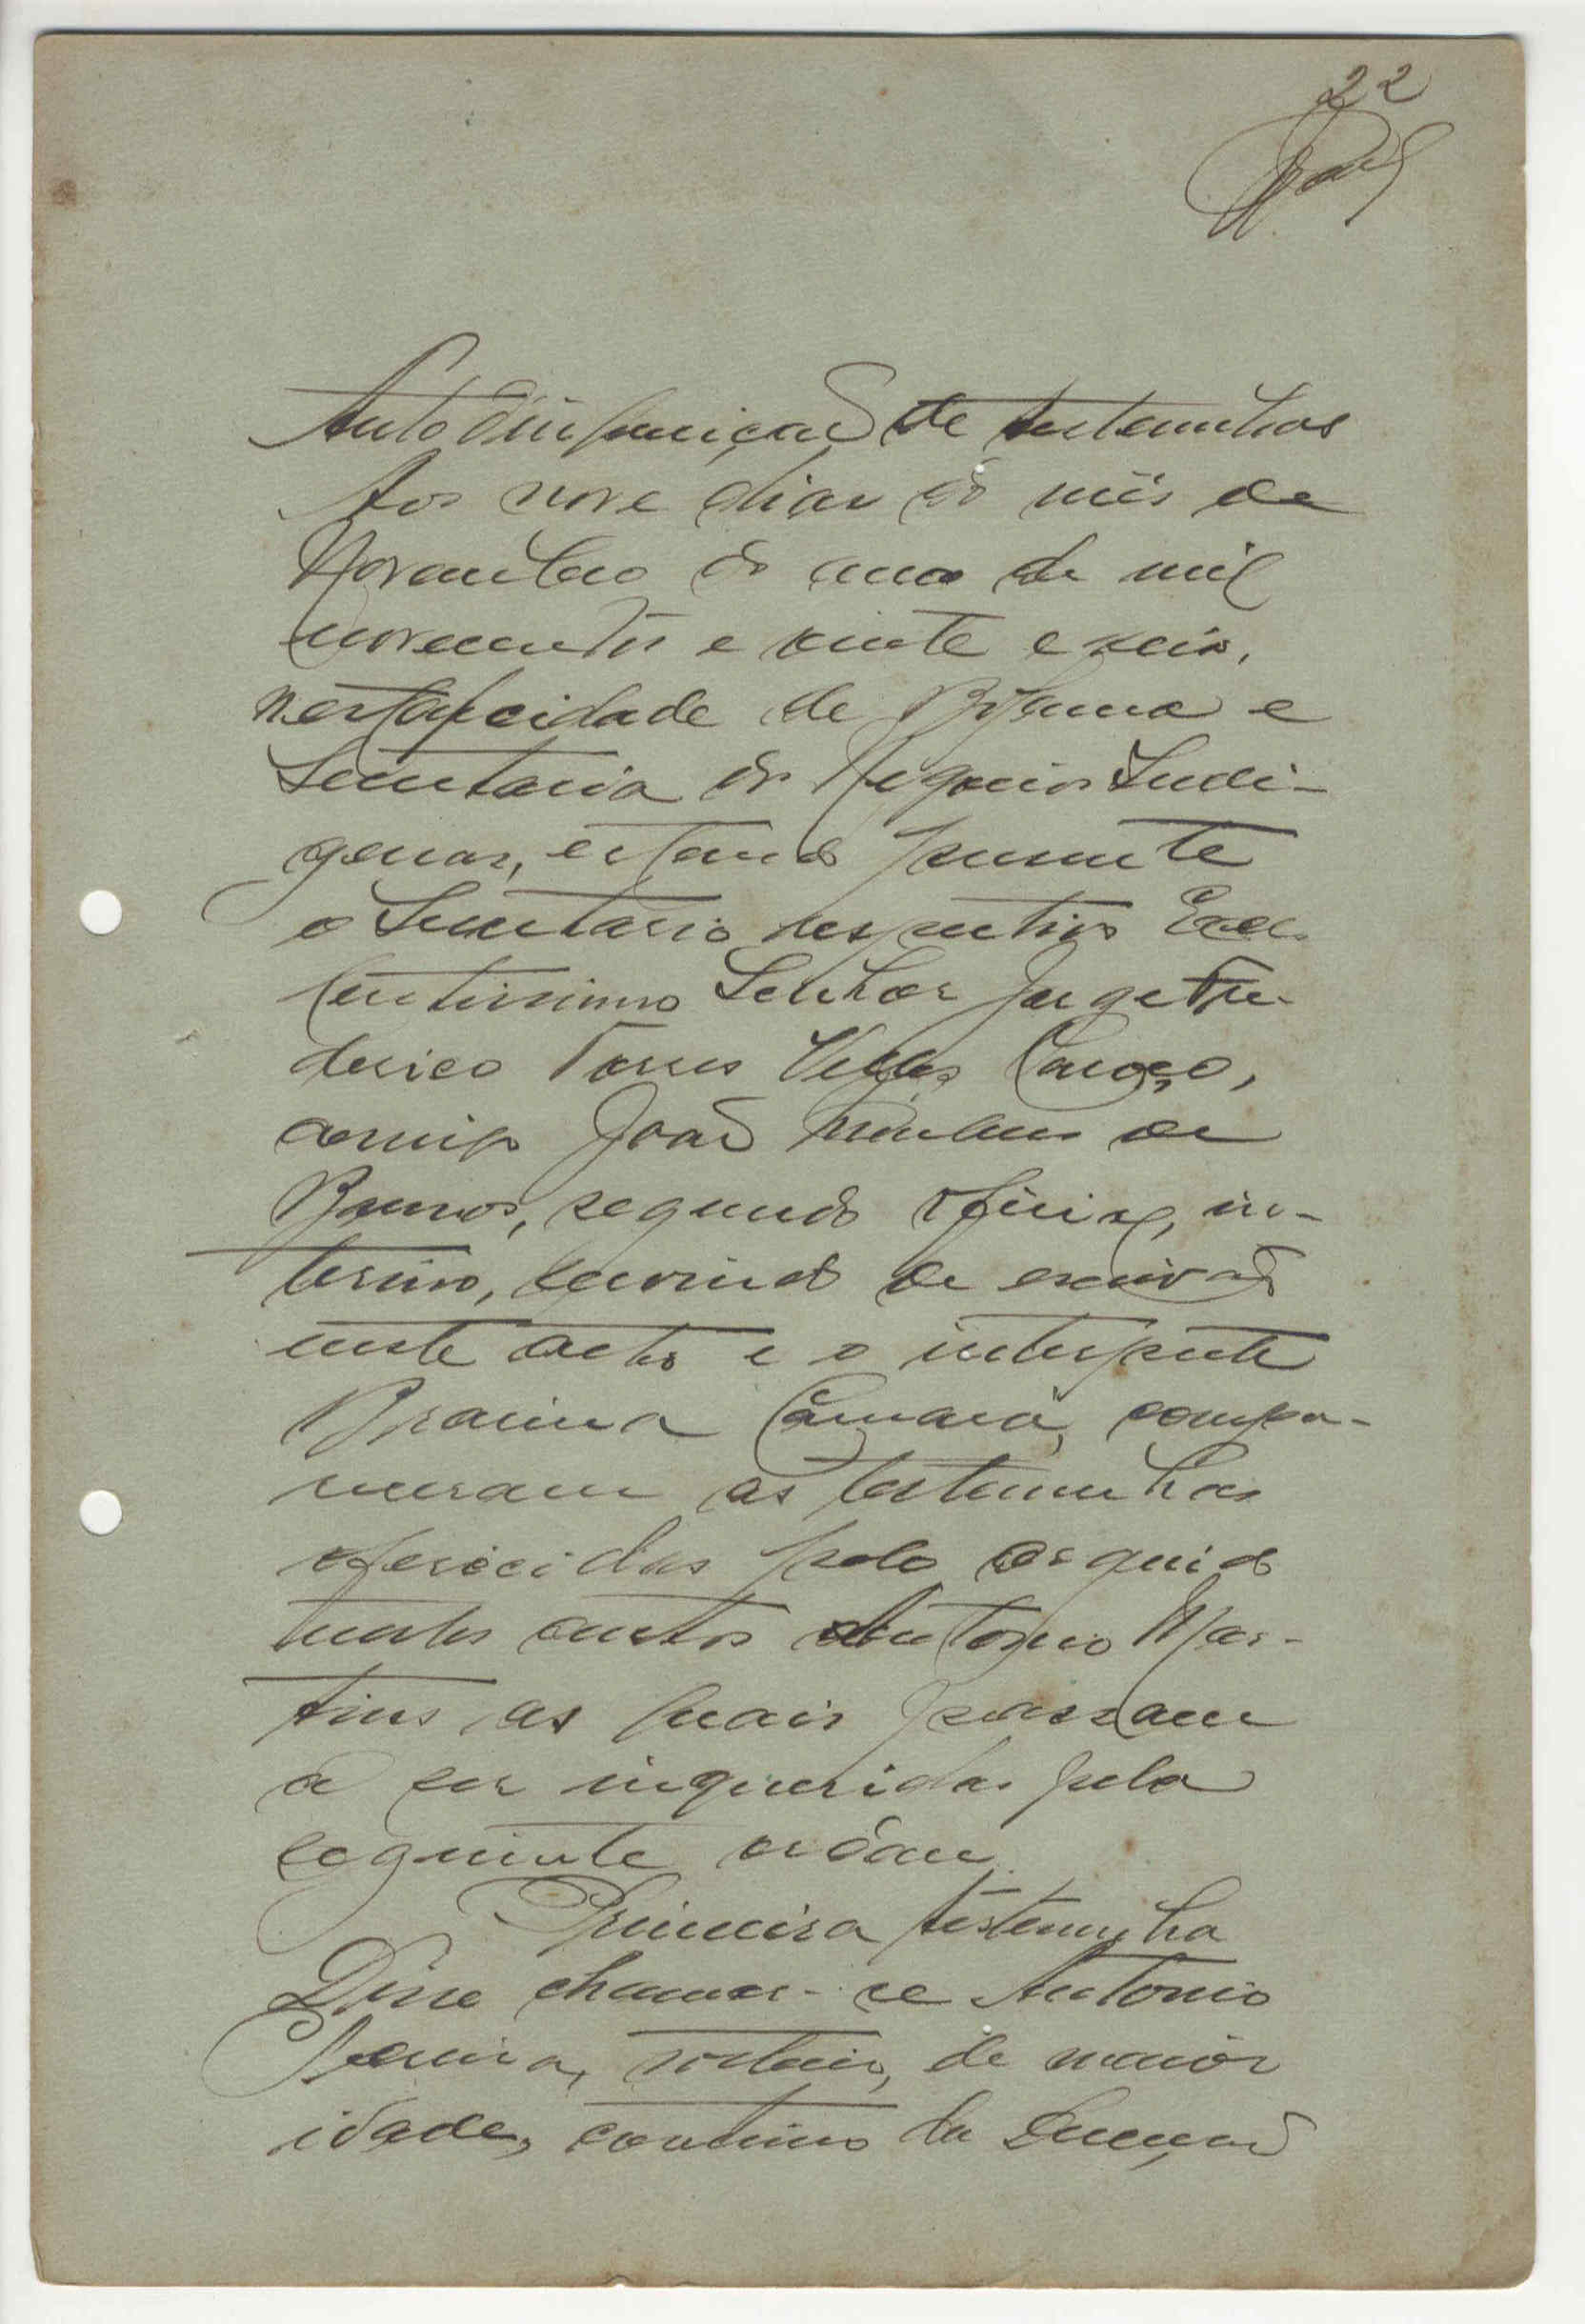 22
Auto d'inquirição de testemunhas
Aos nove dias do mês de
Novembro do ano de mil
novecentos e vinte e seis,
nesta cidade de Bolama e
Secretaria dos Negocios Indi-
genas, estando presente
o Secretario respectivo Excel-
lentissimo Senhor Jorge Fre-
derico Torres Velez Caroço,
comigo João de
Barros, segundo oficial, in-
terino, servindo de escrivão
neste acto e o interprete
Braima Câmará, compa-
receram as testemunhas
oferecidas pelo arguido
nestes autos Antonio Mar-
tins as quais passam
a ser inqueridas pela
seguinte ordem.
Primeira testemunha
Disse chamar-se Antonio
Pereira, solteiro, de maior
idade, continuo da